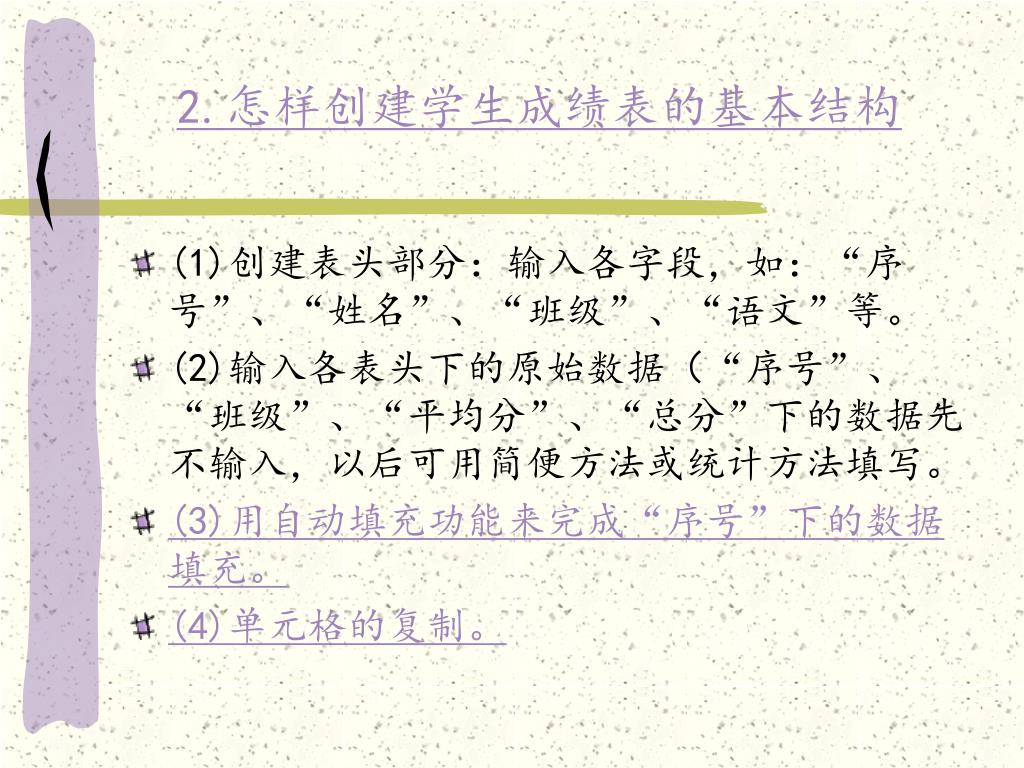 2.怎样创建学生成绩表的基本结构
(1)创建表头部分：输入各字段，如：“序
号”、“姓名”、“班级”、“语文”等。
(2)输入各表头下的原始数据（“序号”、
“班级”、“平均分”、“总分”下的数据先
不输入，以后可用简便方法或统计方法填写。
(3)用自动填充功能来完成“序号”下的数据
填充。
(4)单元格的复制。